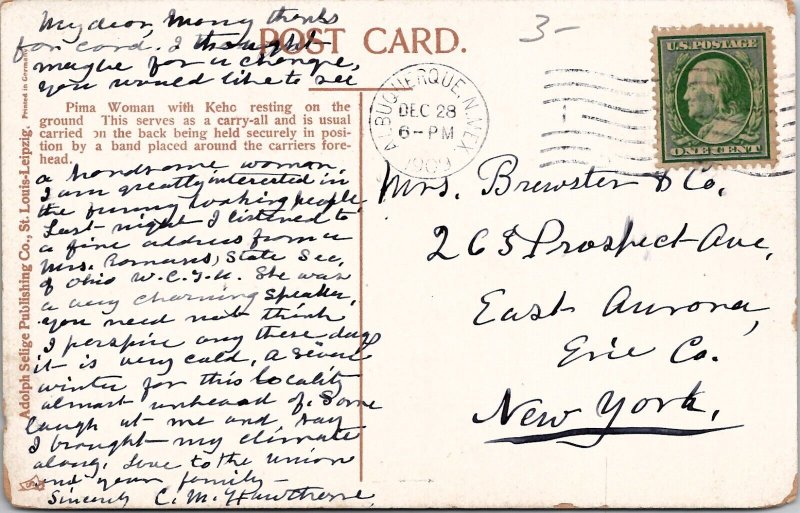 My dear, Many thanks
for card. I thought
maybe for a change,
you would like to see
POST CARD.
3-
U.S. POSTAGE
ONE CENT
ALBUQUERQUE, N. MEX.
DEC 28
6-PM
1909
Pima Woman with Keho resting on the
ground This serves as a carry-all and is usual
carried on the back being held securely in posi-
tion by a band placed around the carriers fore-
head.
a handsome woman.
I am greatly interested in
the funny looking people.
Last night I listened to
a fine address from a
Mrs. Romans, State Sec,
of Ohio W.C.T.U. She was
a very charming speaker,
you need not think
I perspire any these days
it is very cold, a severe
winter for this locality
almost unheard of. Some
laugh at me and say
I brought my climate
along. Love to the union
and your family -
Sincerely C. M. Hawthorne
Mrs. Brewster & Co,
265 Prospect Ave,
East Aurora,
Erie Co.
New York,
Adolph Selige Publishing Co., St. Louis-Leipzig.
Printed in Germany